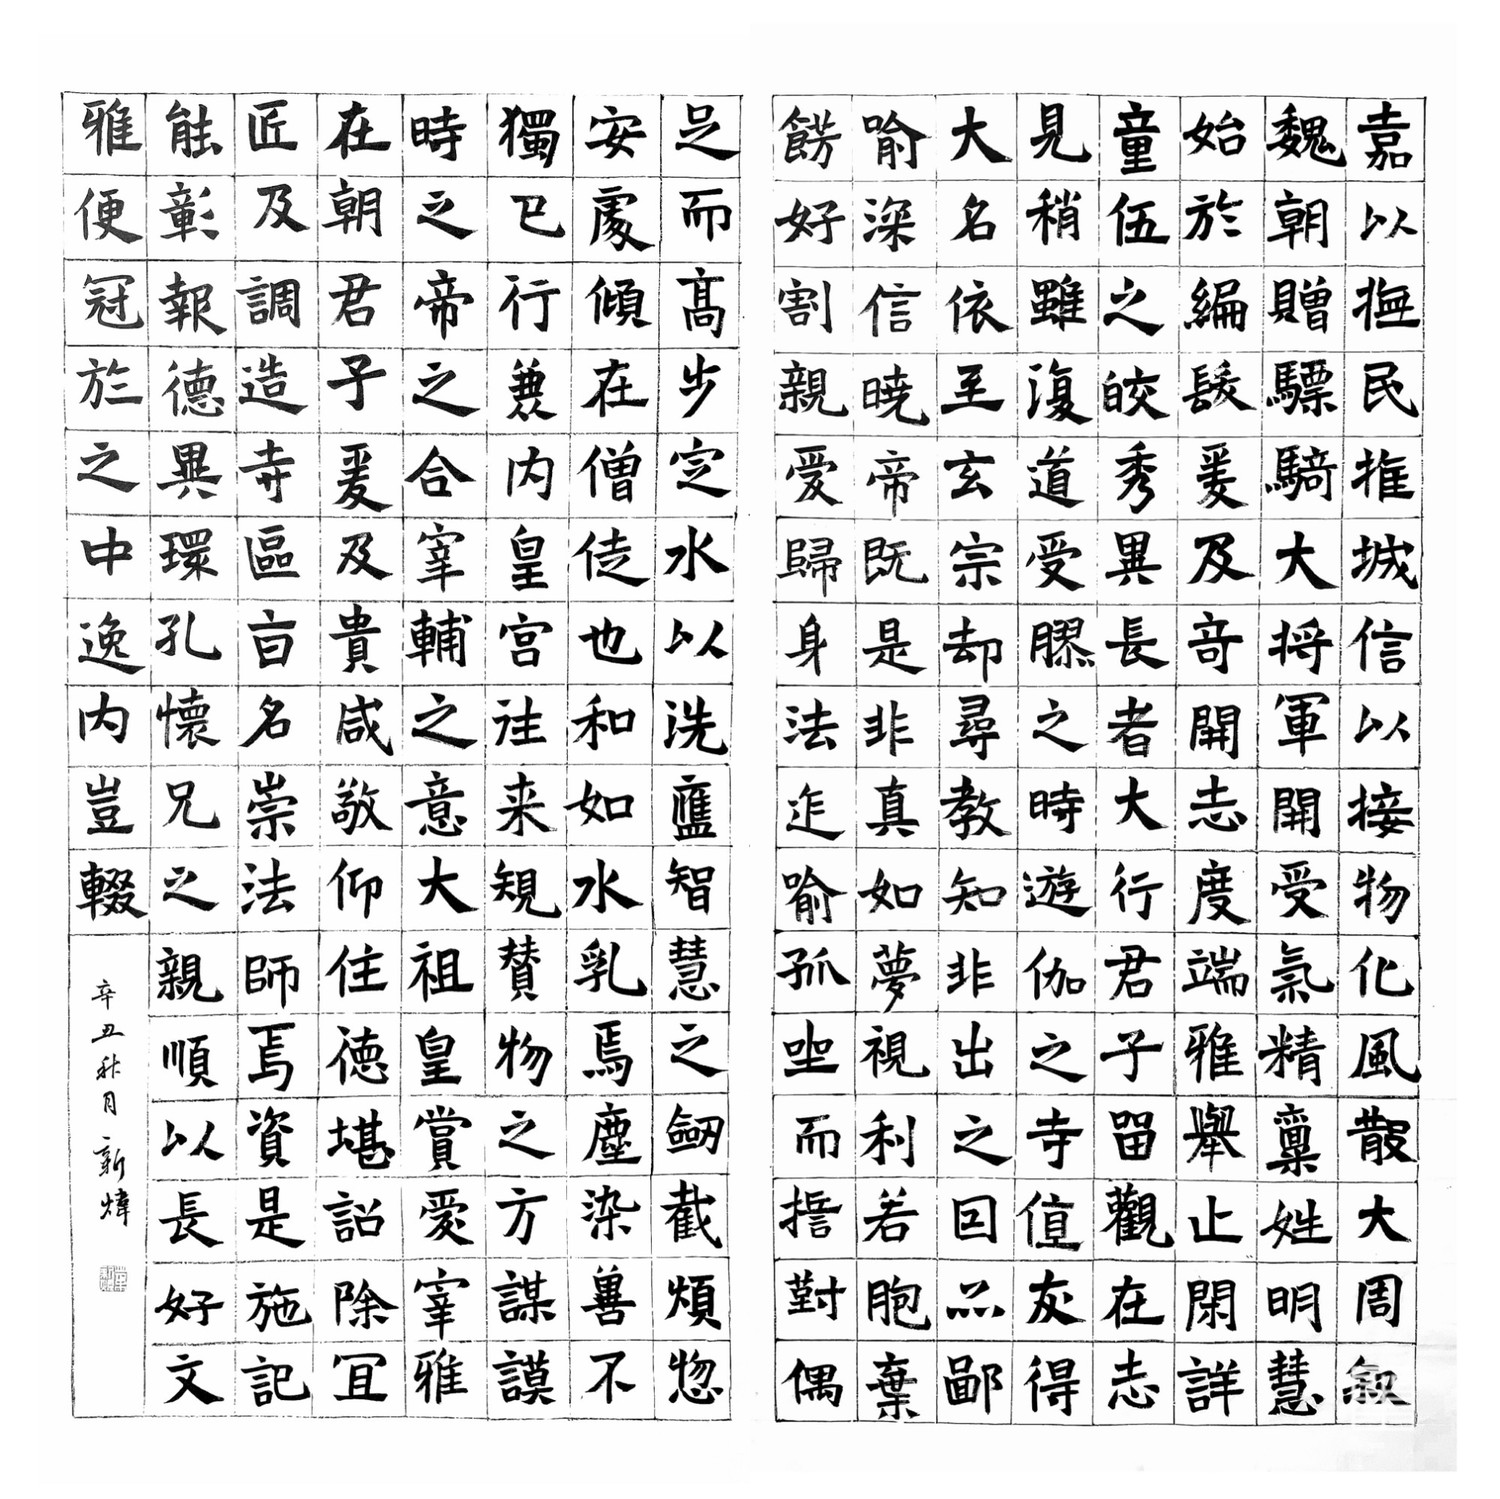 嘉以撫民推城信以接物化風散大周叙
魏朝贈驃騎大將軍開受氣精稟姓明慧
始於編髮爰及奇開志度端雅舉止閑詳
童伍之皎秀異長者大行君子留觀在志
見稍雖復道受膠之時遊伽之寺值灰得
大名依至玄宗却尋教知非出之回品鄙
喻深信曉帝既是非真如夢視利若胞棄
餝好割親愛歸身法迮喻孤坐而擔對偶
足而高步定水以洗塵智慧之劒截煩惣
安處傾在僧徒也和如水乳焉塵染善不
獨已行兼内皇宫往来規贊物之方謀謨
時之帝之合宰輔之意大祖皇賞愛宰雅
在朝君子爰及貴咸敬仰住德堪詔除宜
匠及調造寺區亘名崇法師焉資是施記
能彰報德異環孔懷兄之親順以長好文
雅便冠於之中逸内豈輟
辛丑秋月新煒